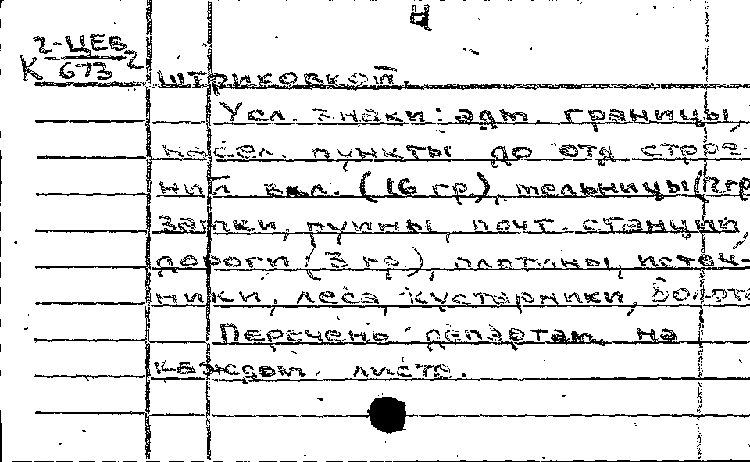 4
2-ЦЕВ
К 673 2
штриковкой.
Усл. знаки: адм. границы,
насел. пункты до отд строе-
ний вкл. (16 гр), мельницы (2 гр
замки, руины, почт. станции,
дороги (3 гр), плотины, источ-
ники, леса, кустарники, болота
Перечень департам. на
каждом листе.